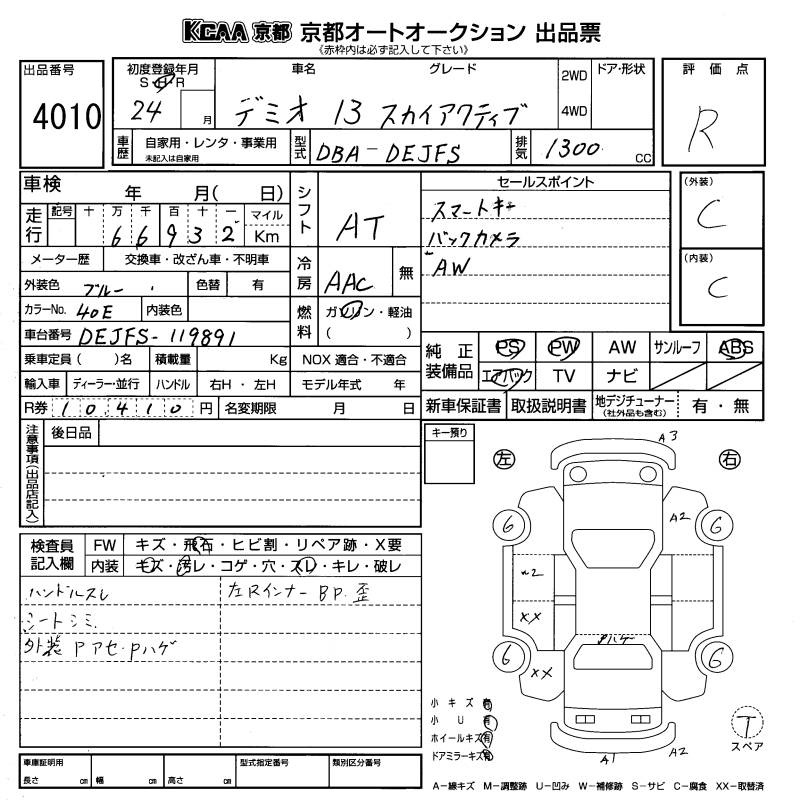 KCAA 京都 京都オートオークション 出品票
《赤枠内は必ず記入して下さい》
出品番号
4010
初度登録年月
S H R
24 月
車名 グレード
デミオ 13 スカイアクティブ
2WD
4WD
ドア・形状
評価点
R
車歴
自家用・レンタ・事業用
未記入は自家用
型式
DBA-DEJFS
排気
1300 cc
車検 年 月( 日)
走行
記号 十 万 千 百 十 一 マイル
6 6 9 3 2 Km
メーター歴 交換車・改ざん車・不明車
外装色 ブルー 色替 有
カラーNo. 40E 内装色
車台番号 DEJFS-119891
乗車定員 ( )名 積載量 Kg
輸入車 ディーラー・並行 ハンドル 右H・左H
R券 10410 円 名変期限 月 日
シフト
AT
冷房
AAC 無
燃料
ガソリン・軽油
( )
NOX 適合・不適合
モデル年式 年
セールスポイント
スマートキー
バックカメラ
AW
(外装)
C
(内装)
C
純正装備品
PS PW AW サンルーフ ABS
エアバック TV ナビ
新車保証書 取扱説明書 地デジチューナー 有・無
(社外品も含む)
注意事項(出品店記入)
後日品
キー預り
左
右
検査員記入欄
FW キズ・飛石・ヒビ割・リペア跡・X要
内装 キズ・汚レ・コゲ・穴・スレ・キレ・破レ
ハンドルスレ
シートシミ
外装 Pアセ・Pハゲ
左Rインナー BP 歪
A3
A2
6
6
6
6
XX
XX
Pハゲ
A1
A2
小キズ 有
小U 有
ホイールキズ 有
ドアミラーキズ 有
T
スペア
車庫証明用
長さ cm 幅 cm 高さ cm
型式指定番号
類別区分番号
A-線キズ M-調整跡 U-凹み W-補修跡 S-サビ C-腐食 XX-取替済